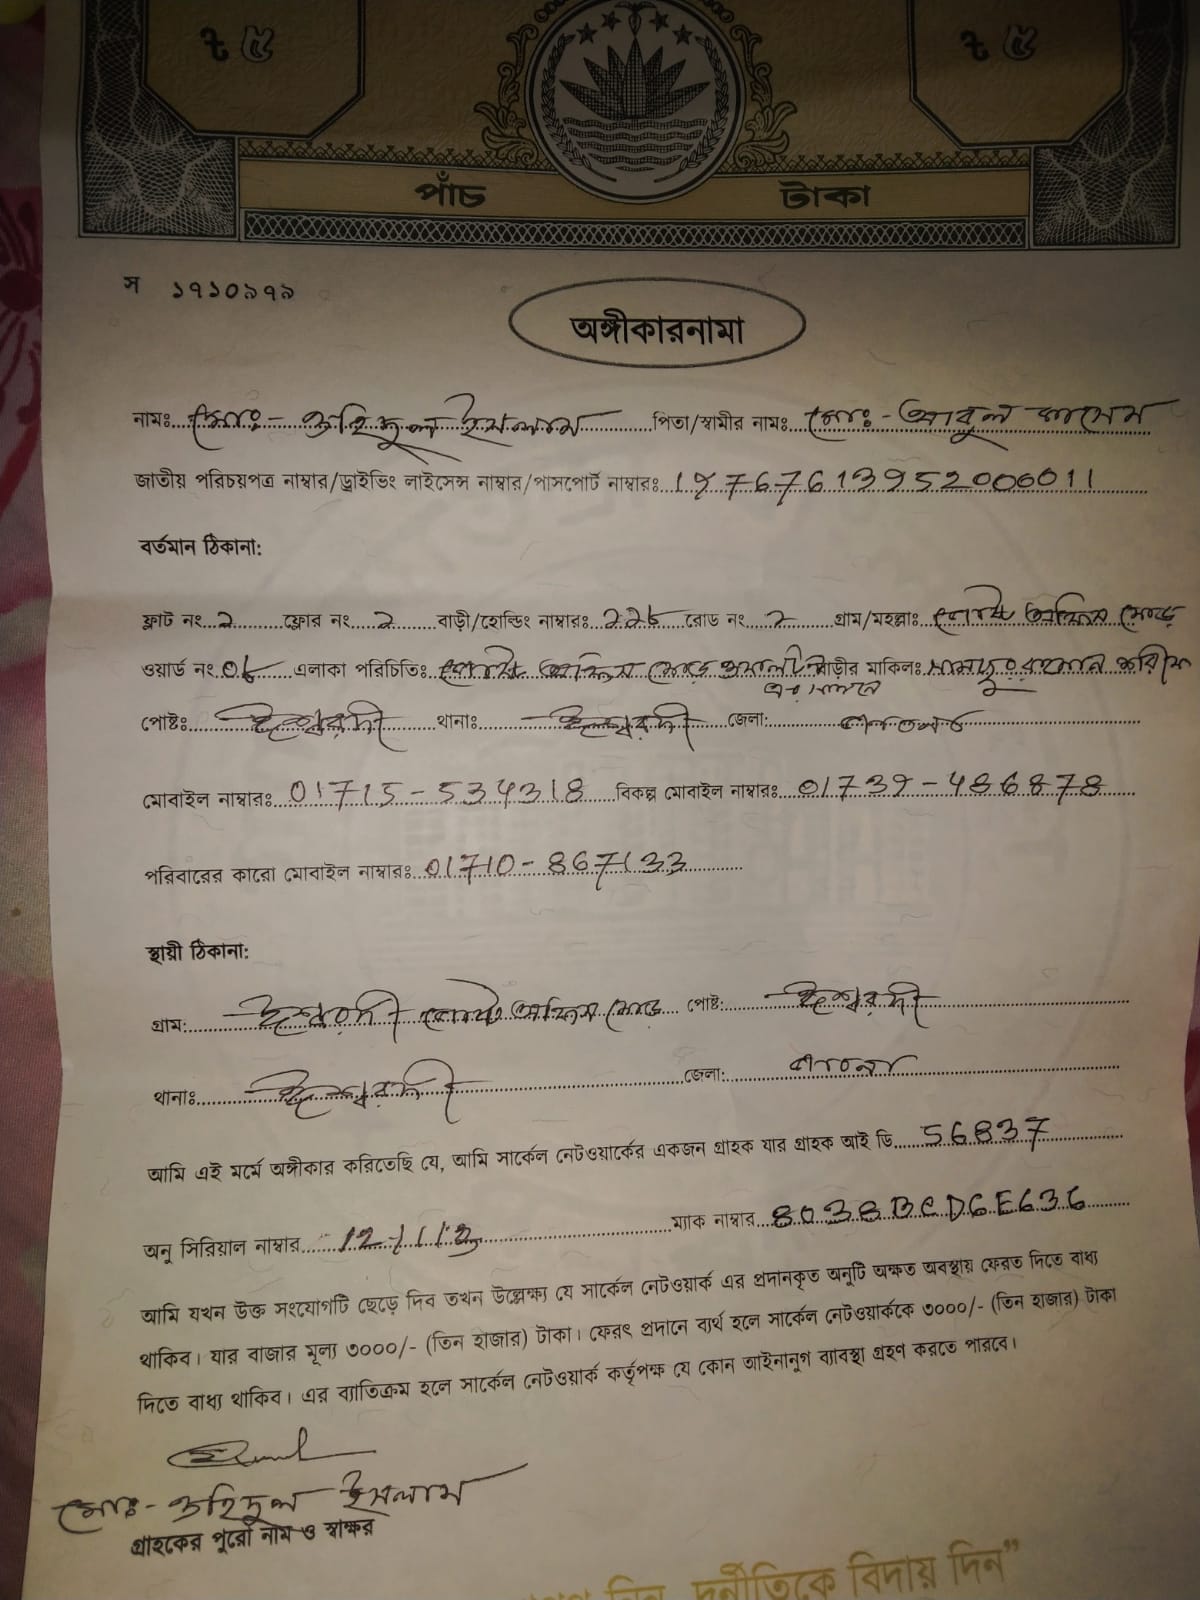 ৳ ৫ ৳ ৫
পাঁচ টাকা
স ১৭১০৯৭৯
অঙ্গীকারনামা
নামঃ মোঃ- ওহিদুল ইসলাম পিতা/স্বামীর নামঃ মোঃ- আবুল কাসেম
জাতীয় পরিচয়পত্র নাম্বার/ড্রাইভিং লাইসেন্স নাম্বার/পাসপোর্ট নাম্বারঃ 19767613952000011
বর্তমান ঠিকানা:
ফ্লাট নং ২ ফ্লোর নং ২ বাড়ী/হোল্ডিং নাম্বারঃ ২২৮ রোড নং ২ গ্রাম/মহল্লাঃ পোষ্ট অফিস মোড়
ওয়ার্ড নং ০৮ এলাকা পরিচিতিঃ পোষ্ট অফিস মোড় বাড়ীর মালিকঃ শরিফ
এর সামনে
পোষ্টঃ ঈশ্বরদী থানাঃ ঈশ্বরদী জেলা:
মোবাইল নাম্বারঃ 01715-534318 বিকল্প মোবাইল নাম্বারঃ 01739-486878
পরিবারের কারো মোবাইল নাম্বারঃ 01710-867133
স্থায়ী ঠিকানা:
গ্রাম: ঈশ্বরদী পোষ্ট অফিস মোড় পোষ্ট: ঈশ্বরদী
থানাঃ ঈশ্বরদী জেলা: পাবনা
আমি এই মর্মে অঙ্গীকার করিতেছি যে, আমি সার্কেল নেটওয়ার্কের একজন গ্রাহক যার গ্রাহক আই ডি 56837
অনু সিরিয়াল নাম্বার ম্যাক নাম্বার 8038BCD6E636
আমি যখন উক্ত সংযোগটি ছেড়ে দিব তখন উল্লেক্ষ্য যে সার্কেল নেটওয়ার্ক এর প্রদানকৃত অনুটি অক্ষত অবস্থায় ফেরত দিতে বাধ্য
থাকিব। যার বাজার মূল্য ৩০০০/- (তিন হাজার) টাকা। ফেরৎ প্রদানে ব্যর্থ হলে সার্কেল নেটওয়ার্ককে ৩০০০/- (তিন হাজার) টাকা
দিতে বাধ্য থাকিব। এর ব্যাতিক্রম হলে সার্কেল নেটওয়ার্ক কর্তৃপক্ষ যে কোন আইনানুগ ব্যাবস্থা গ্রহণ করতে পারবে।
মোঃ- ওহিদুল ইসলাম
গ্রাহকের পুরো নাম ও স্বাক্ষর
দুর্নীতিকে বিদায় দিন”